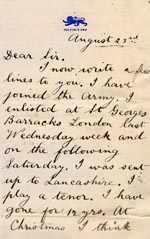 THE KING'S OWN
August 23rd.
Dear Sir.
I now write a few
lines to you. I have
joined the Army. I
enlisted at St Georges
Barracks London last
Wednesday week and
on the following
Saturday. I was sent
up to Lancashire. I
play a tenor. I have
gone for 12 yrs. At
Christmas I think